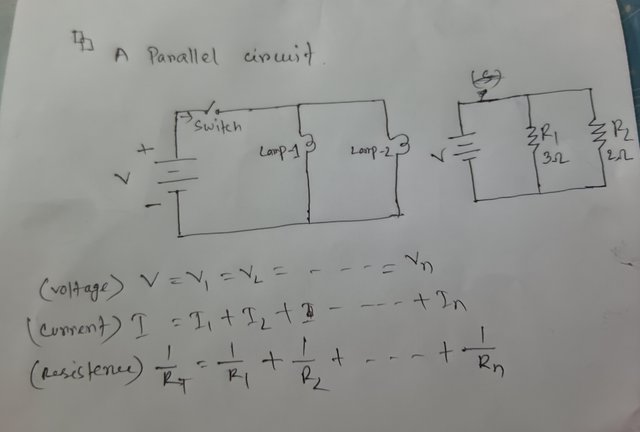 A Parallel circuit.
(S)
Switch
+
V
-
Lamp-1
Lamp-2
V
R1
3Ω
R2
2Ω
(voltage) V = V1 = V2 = - - - - = Vn
(current) I = I1 + I2 + I - - - - + In
(Resistence) 1/RT = 1/R1 + 1/R2 + - - - - + 1/Rn